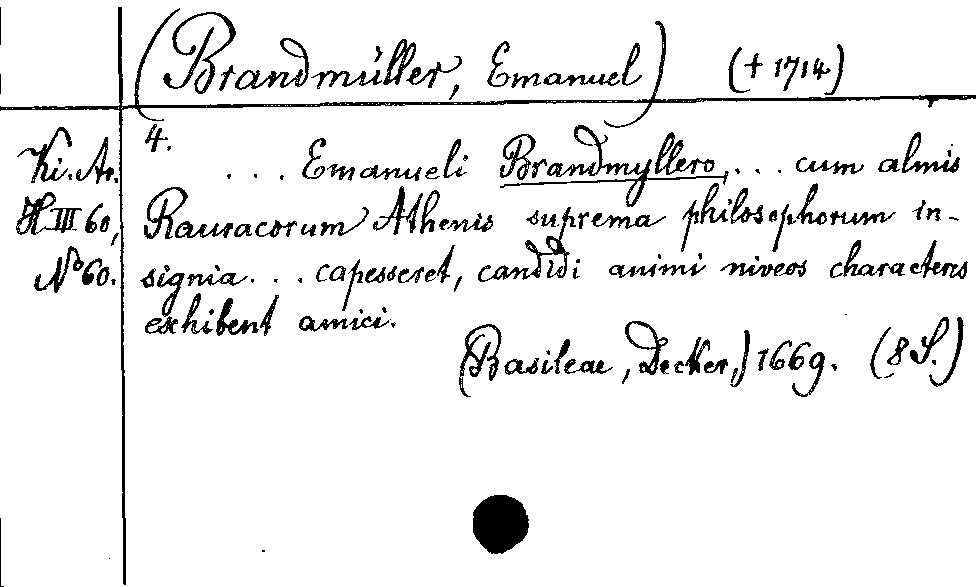 (Brandmüller, Emanuel) († 1714)
4.
Ki. Ar.
H III 60,
No 60.
... Emanueli Brandmyllero, ... cum almis
Rauracorum Athenis suprema philosophorum in-
signia ... capesseret, candidi animi niveos characteres
exhibent amici.
(Basileae, Decker,) 1669. (8 S.)